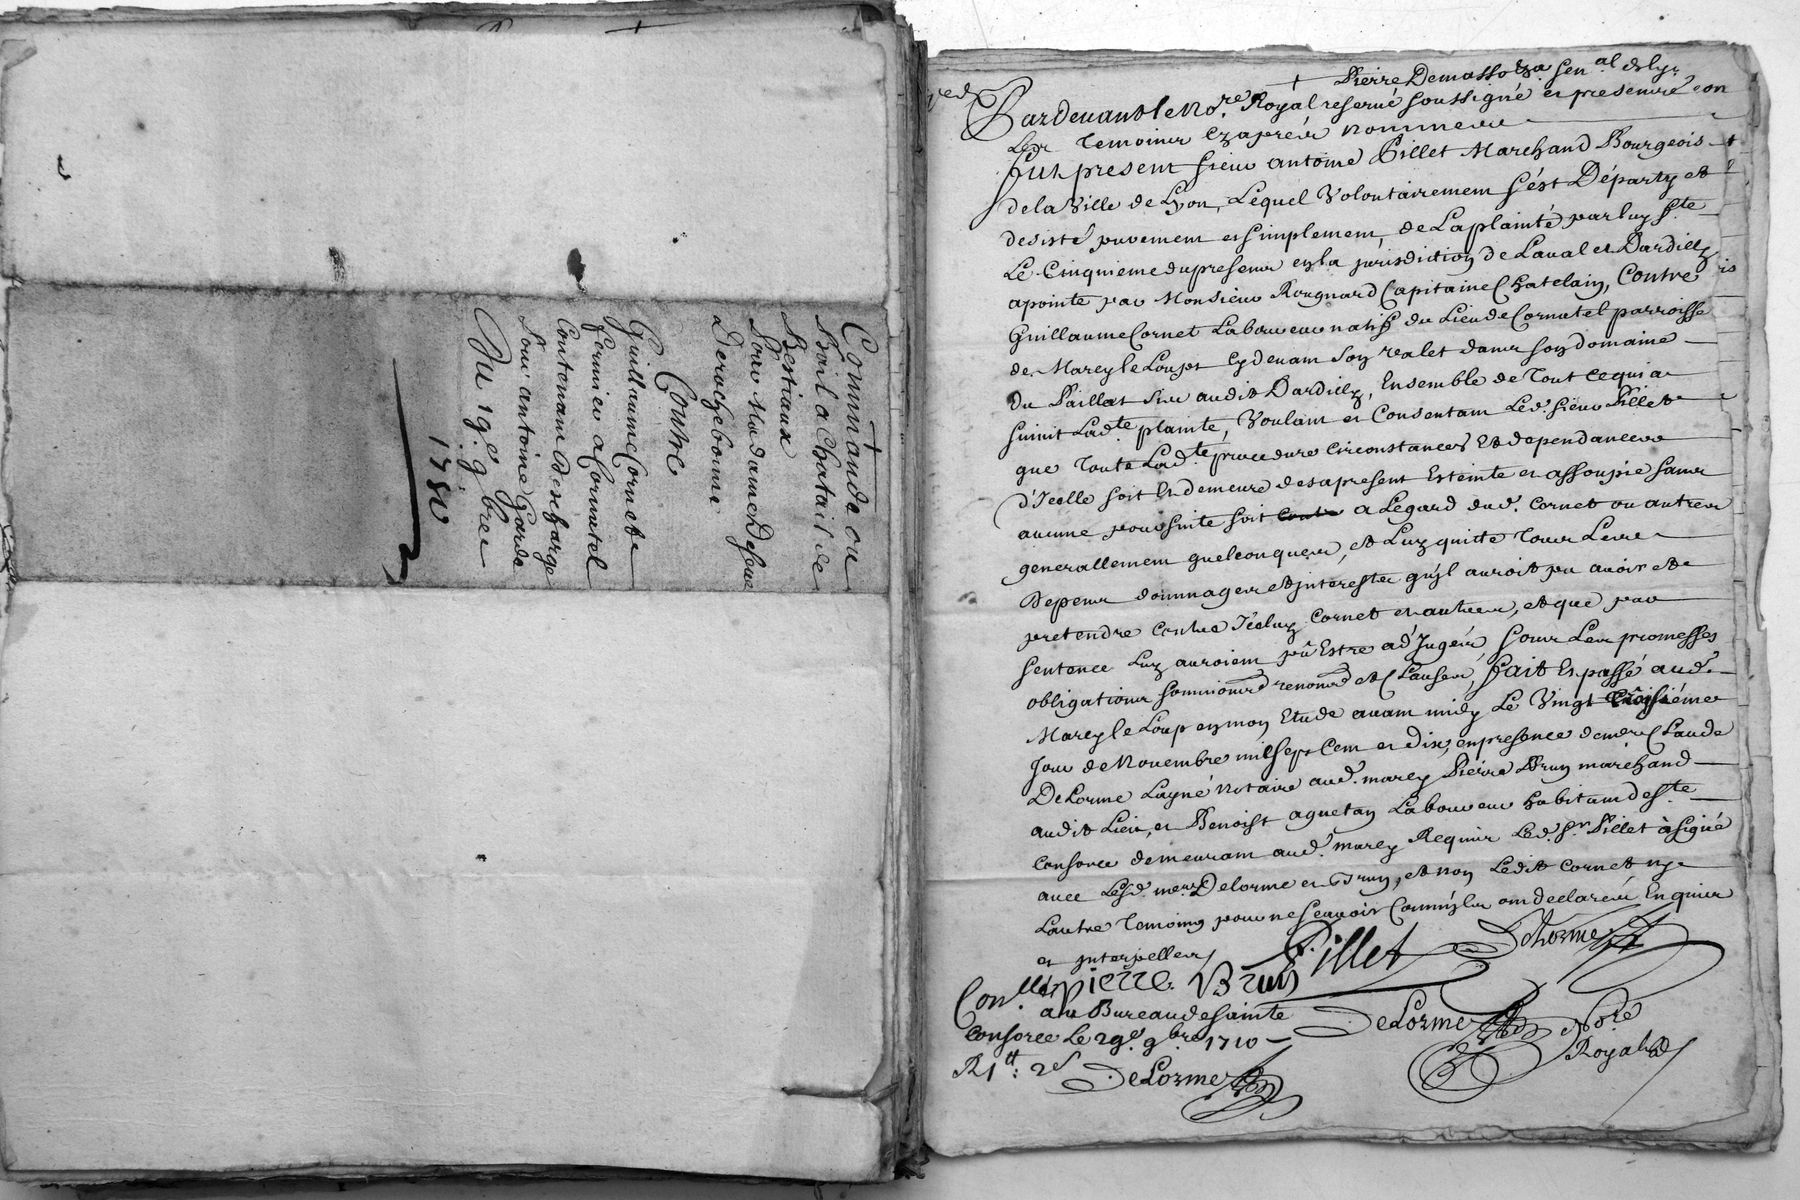 Commande ou
Bail a Chatail de
Bestiaux
Pour Madame Defeue
Derochebonne
Contre
Guillaume Cornet
fermier a Cornutel
Contenant Descharge
Pour antoine Garde
Du 19e 9bre
1710
Pierre Demasso sen.al de ly.
Pardevant le No.re Royal reservé soussigné et presence
Les Temoins cyapres nommes
Fut present sieur antoine Pillet Marchand Bourgeois
de la Ville de Lyon, Lequel Volontairement s'est Départy et
desisté purement et simplement, de La plainte par luy f.te
Le Cinquieme du present en la jurisdiction de Laval et Dardilly
apointé par Monsieur Rougnard Capitaine Chatelain, Contre
Guillaume Cornet Laboureur natif du Lieu de Cornutel parroisse
de Marcy le Loup cydevant son valet dans son domaine
du Paillat sur audit Dardilly, Ensemble de Tout ce qui a
suivit Lad.te plainte, Voulant et Consentant Led. sieur Pillet
que Toute Lad.te procedure circonstances Et dependances
d'Icelle soit Et demeure des apresent Esteinte et assoupie sans
aucune poursuite soit a Legard dud. Cornet ou autres
generallement quelconques, et Luy quitte Tous Les
Depens dommages et interests qu'jl auroit pu avoir et
pretendre Contre Iceluy Cornet et autres, et que par
sentence Luy auroient pû Estre ad'Jugés, sous Les promesses
obligations soumions renon.on et Clauses, fait Et passé aud.
Marcy le Loup en mon Etude avant midy Le Vingt Troisiéme
Jour de Novembre mil sept Cent et Dix, en presence de me. Claude
Delorme Layné notaire aud. marcy Pierre Brun marchand
audit Lieu, et Benoist aguetan Laboureur habitant de S.te
Consorce demeurant aud. marcy Requis Led. s.r Pillet à signé
avec Lesd. mes. Delorme et Brun, et non Ledit Cornet ny
Lautre Temoins pour ne scavoir Comm'jls ont declarés Enquis
et jnterpelles
Pillet Delorme
pierre Brun
Con.llé au Bureau de sainte
Consorce Le 29e. 9bre 1710
Delorme No.re
Royal
R 1tt: 2s
Delorme